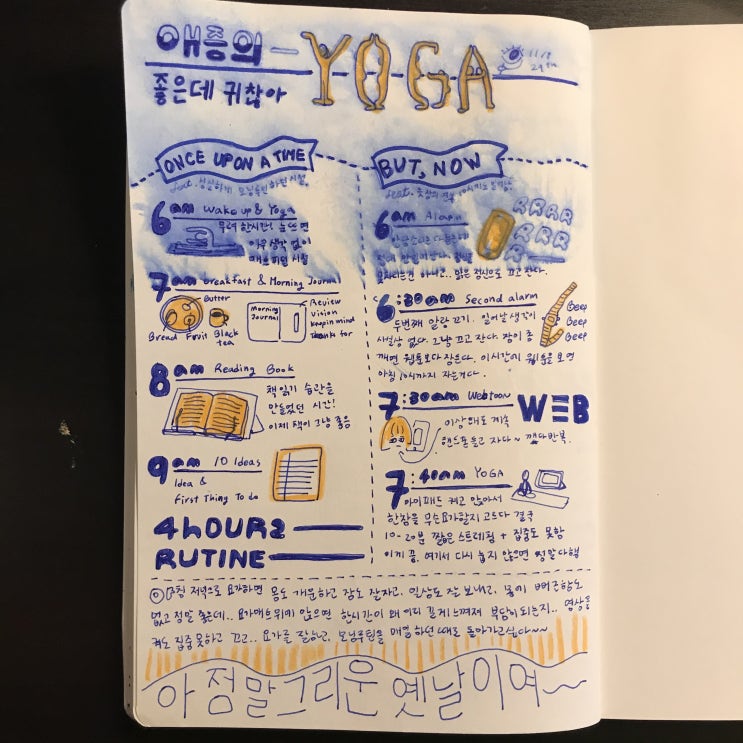 애증의 — YOGA
좋은데 귀찮아
11/8
ONCE UPON A TIME
feat. 성실하게 모닝루틴 하던 시절
6am Wake up & Yoga
무려 한시간! 눈뜨면
아무생각 없이
매트 피던 시절
7am Breakfast & Morning Journal
Butter
Bread Fruit Black tea
Morning Journal
Review
vision
keep in mind
thanks for
8am Reading Book
책 읽기 습관을
만들었던 시간!
이제 책이 그냥 좋음
9am 10 Ideas
Idea &
First Thing To do
4 hOURS
RUTINE
BUT, NOW
feat.
6am Alarm
RRRR
RRR
R
못차리는건 아니고.. 맑은 정신으로 끄고 잔다.
6:30am Second alarm
두번째 알람 끄기. 일어날 생각이
사실상 없다. 그냥 끄고 잔다. 잠이 좀
깨면 웹툰보다 잠든다. 이시간에 웹툰을 보면
아침 10시까지 자는거다.
Beep
Beep
Beep
7:30am Webtoon
WEB
이상해도 계속
핸드폰 들고 자다~ 깼다 반복.
7:40am YOGA
아이패드 켜고 앉아서
한참을 무슨요가할지 고르다 결국
10-20분 짧은 스트레칭 + 집중도 못함
이게 끝. 여기서 다시 눕지 않으면 정말 다행
아침 저녁으로 요가하면 몸도 개운하고 잠도 잘자고, 일상도 잘 보내고, 몸에 뻐근함도
없고 정말 좋은데.. 요가매트위에 앉으면 한시간이 왜 이리 길게 느껴져 부담이되는지.. 영상을
켜도 집중못하고 끄고.. 요가를 잘하고, 모닝루틴을 매일 하던 때로 돌아가고싶다~~
아 정말 그리운 옛날이여~